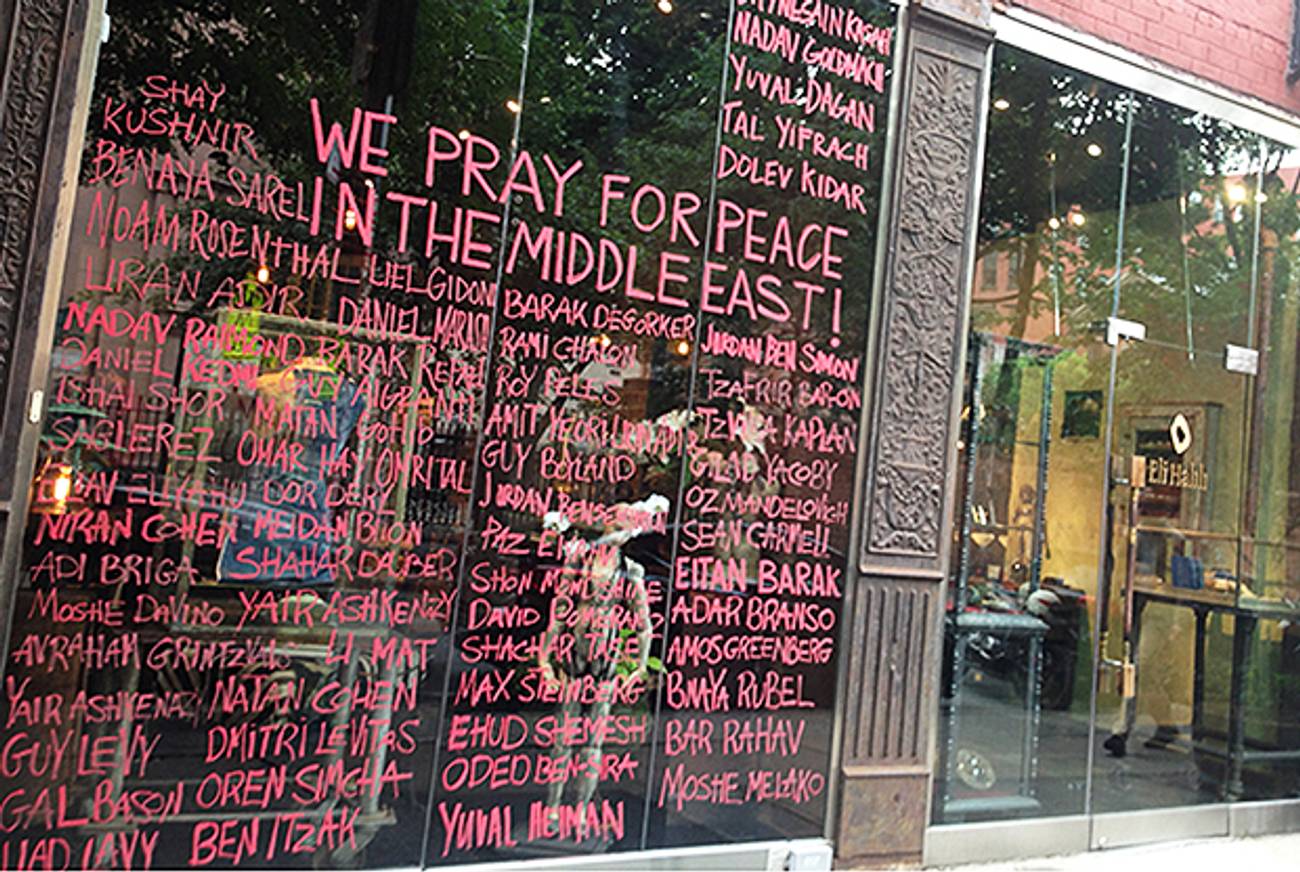 WE PRAY FOR PEACE
IN THE MIDDLE EAST!
SHAY
KUSHNIR
BENAYA SAREL
NOAM ROSENTHAL LIEL GIDONI
URAN ADIR DANIEL
NADAV RAIMOND BARAK REFAEL
DANIEL KEDMI GUY ALGRANTI
ISHAI SHOR MATAN GOTLIB
SAGI EREZ OMAR HAY OMRI TAL
ELIYAHU DOR DERY
NIRAN COHEN MEIDAN BITON
ADI BRIGA SHAHAR DAUBER
MOSHE DAVINO YAIR ASHKENZY
AVRAHAM LI MAT
YAIR ASHKENAZ NATAN COHEN
GUY LEVY DMITRI LEVITAS
GAL BASON OREN SIMCHA
LAVY BEN ITZAK
BARAK DEGORKER
RAMI CHALON
ROY PELES
AMIT YEORI
GUY BOYLAND
JORDAN BENSEMHON
PAZ
SHON
DAVID
SHACHAR TASE
MAX STEINBERG
EHUD SHEMESH
ODED BEN-SIRA
YUVAL HEIMAN
KASAH
NADAV GOLDMACH
YUVAL DAGAN
TAL YIFRACH
DOLEV KIDAR
JORDAN BEN SIMON
TZAFRIR BAR-ON
TZVIKA KAPLAN
GILAD YACOBY
OZ MANDELOVICH
SEAN CARMELI
EITAN BARAK
ADAR BRANSO
AMOS GREENBERG
BNAYA RUBEL
BAR RAHAV
MOSHE MELAKO
Eli Halili